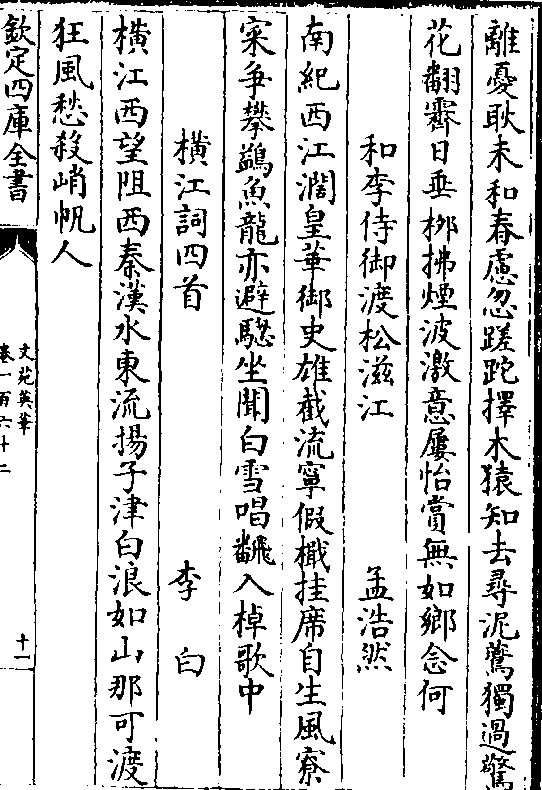 離憂耿未和春慮忽蹉跎擇木猿知去尋泥鷰獨過驚
花翻霽日垂栁拂煙波激意屢怡賞無如鄉念何
和李侍御渡松滋江　孟浩然
南紀西江濶皇華御史雄截流寧假檝挂席自生風寮
寀爭攀鷁魚龍亦避驄坐聞白雪唱飜入棹歌中
橫江詞四首　李白
橫江西望阻西秦漢水東流揚子津白浪如山那可渡
狂風愁殺峭帆人
欽定四庫全書
文苑英華
卷一百六十二
十一